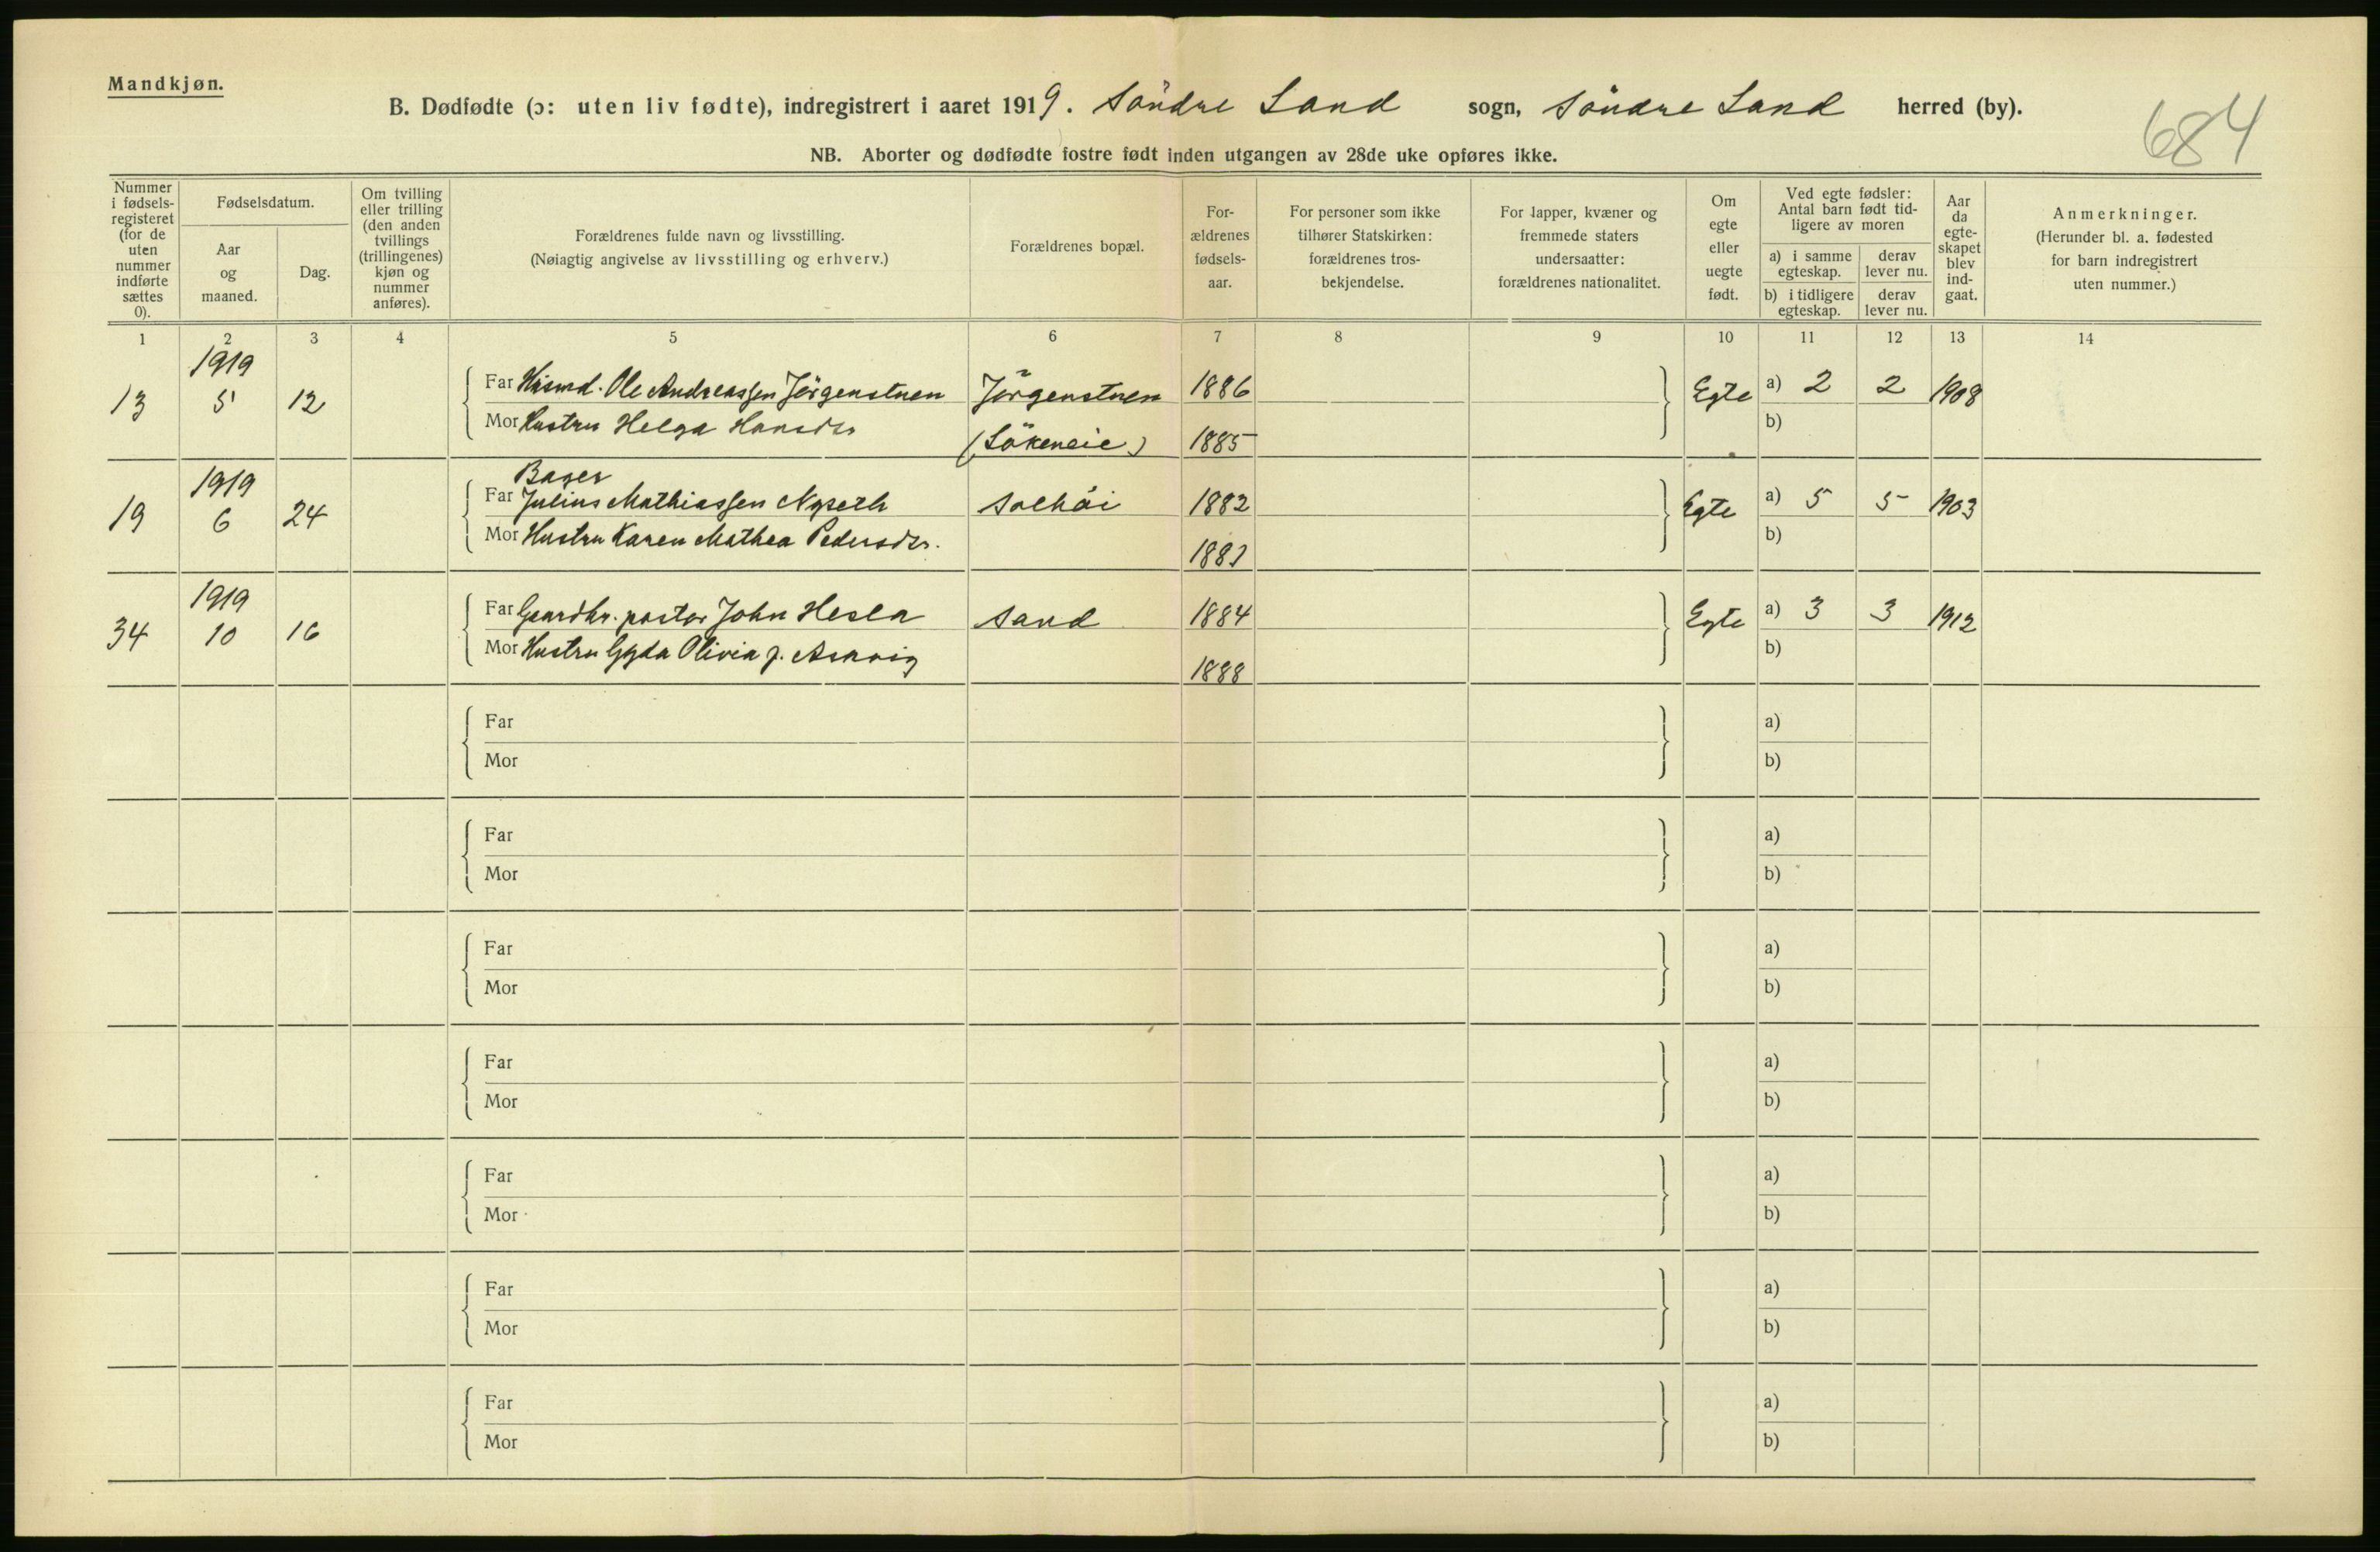 Mandkjøn.
B. Dødfødte (ɔ: uten liv fødte), indregistrert i aaret 1919. Söndre Land sogn, Söndre Land herred (by).
684
NB. Aborter og dødfødte fostre født inden utgangen av 28de uke opføres ikke.
Nummer i fødselsregisteret (for de uten nummer indførte sættes 0).
Fødselsdatum.
Aar og maaned.
Dag.
Om tvilling eller trilling (den anden tvillings (trillingenes) kjøn og nummer anføres).
Forældrenes fulde navn og livsstilling.
(Nøiagtig angivelse av livsstilling og erhverv.)
Forældrenes bopæl.
Forældrenes fødselsaar.
For personer som ikke tilhører Statskirken: forældrenes trosbekjendelse.
For lapper, kvæner og fremmede staters undersaatter: forældrenes nationalitet.
Om egte eller uegte født.
Ved egte fødsler: Antal barn født tidligere av moren
a) i samme egteskap. derav lever nu.
b) i tidligere egteskap. derav lever nu.
Aar da egteskapet blev indgaat.
Anmerkninger.
(Herunder bl. a. fødested for barn indregistrert uten nummer.)
1 2 3 4 5 6 7 8 9 10 11 12 13 14
1919
13 5 12 Far Husmd. Ole Andreassen Jörgenstuen Jörgenstuen 1886 Egte a) 2 2 1908
Mor Hustru Helga Hansdtr (Lökeneie) 1885 b)
1919 Bager
19 6 24 Far Julius Mathiassen Nyseth Solhöi 1882 Egte a) 5 5 1903
Mor Hustru Karen Mathea Pedersdtr. b)
1919
34 10 16 Far Gaardbr. pastor John Hesla Sand 1884 Egte a) 3 3 1912
Mor Hustru Gyda Olivia f. 1888 b)
Far a)
Mor b)
Far a)
Mor b)
Far a)
Mor b)
Far a)
Mor b)
Far a)
Mor b)
Far a)
Mor b)
Far a)
Mor b)